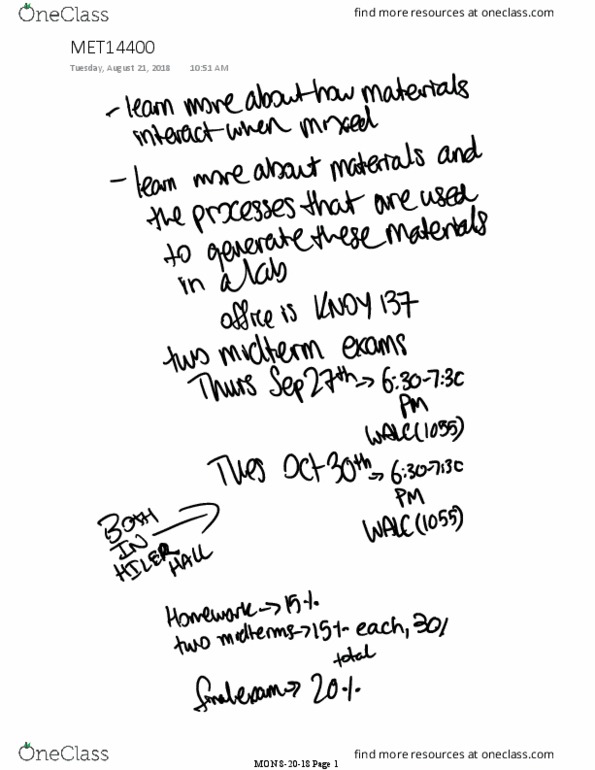 OneClass find more resources at oneclass.com
MET14400
Tuesday, August 21, 2018 10:51 AM
- learn more about how materials
interact when mixed
- learn more about materials and
the processes that are used
to generate these materials
in a lab
office is KNOY 137
two midterm exams
Thurs Sep 27th -> 6:30-7:30
PM
WALC (1055)
Tues Oct 30th -> 6:30-7:30
PM
WALC (1055)
BOTH
IN
HILER
HALL
Homework -> 15%
two midterms -> 15% each, 30%
total
final exam -> 20%
OneClass find more resources at oneclass.com
MON 8-20-18 Page 1